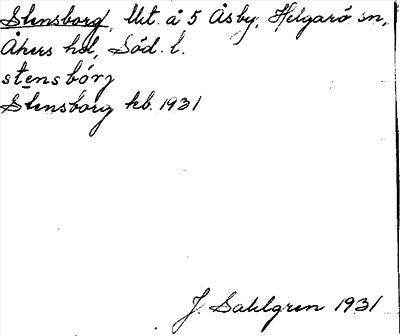 Stensborg, lht. å 5 Åsby, Helgarö sn,
Åkers hd, Söd. l.
stensbórj
Stensborg kb. 1931
J. Sahlgren 1931